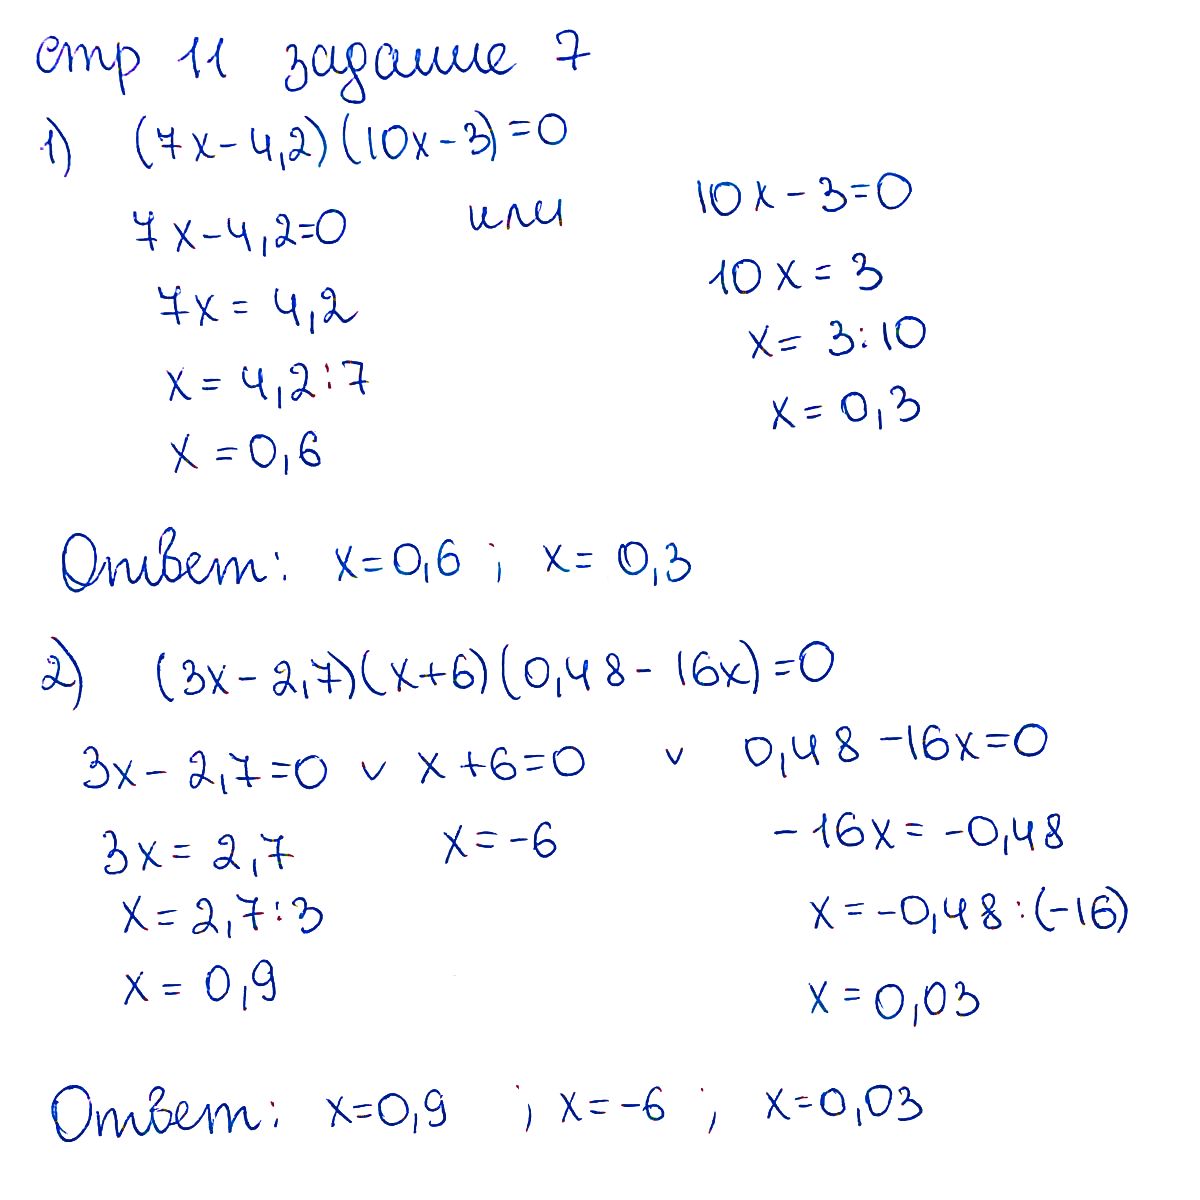 стр 11 задание 7
1) (7x-4,2)(10x-3)=0
7x-4,2=0 или 10x-3=0
7x=4,2 10x=3
x=4,2:7 x=3:10
x=0,6 x=0,3
Ответ: x=0,6 ; x=0,3
2) (3x-2,7)(x+6)(0,48-16x)=0
3x-2,7=0 v x+6=0 v 0,48-16x=0
3x=2,7 x=-6 -16x=-0,48
x=2,7:3 x=-0,48:(-16)
x=0,9 x=0,03
Ответ: x=0,9 ; x=-6 ; x=0,03